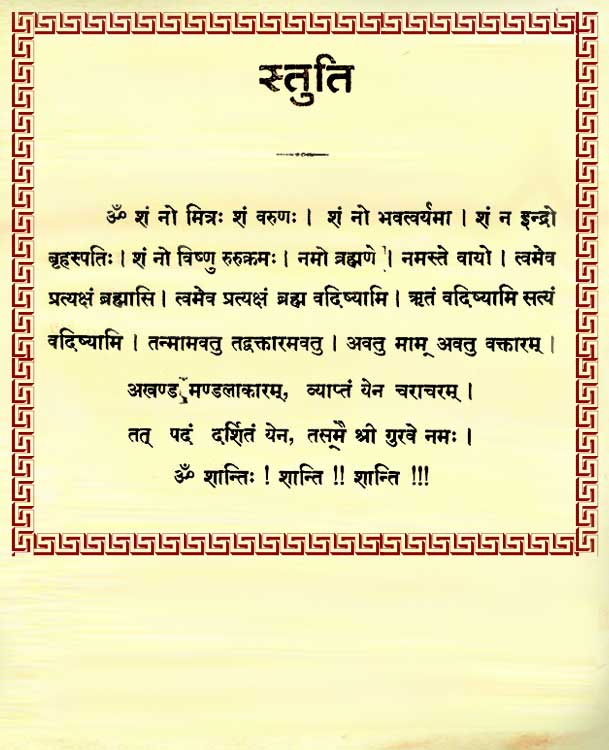 स्तुति
ॐ शं नो मित्रः शं वरुणः। शं नो भवत्वर्यमा। शं न इन्द्रो
बृहस्पतिः। शं नो विष्णु रुरुक्रमः। नमो ब्रह्मणे। नमस्ते वायो। त्वमेव
प्रत्यक्षं ब्रह्मासि। त्वमेव प्रत्यक्षं ब्रह्म वदिष्यामि। ऋतं वदिष्यामि सत्यं
वदिष्यामि। तन्मामवतु तद्वक्तारमवतु। अवतु माम् अवतु वक्तारम्।
अखण्ड मण्डलाकारम्, व्याप्तं येन चराचरम्।
तत् पदं दर्शितं येन, तस्मै श्री गुरवे नमः।
ॐ शान्तिः ! शान्ति !! शान्ति !!!